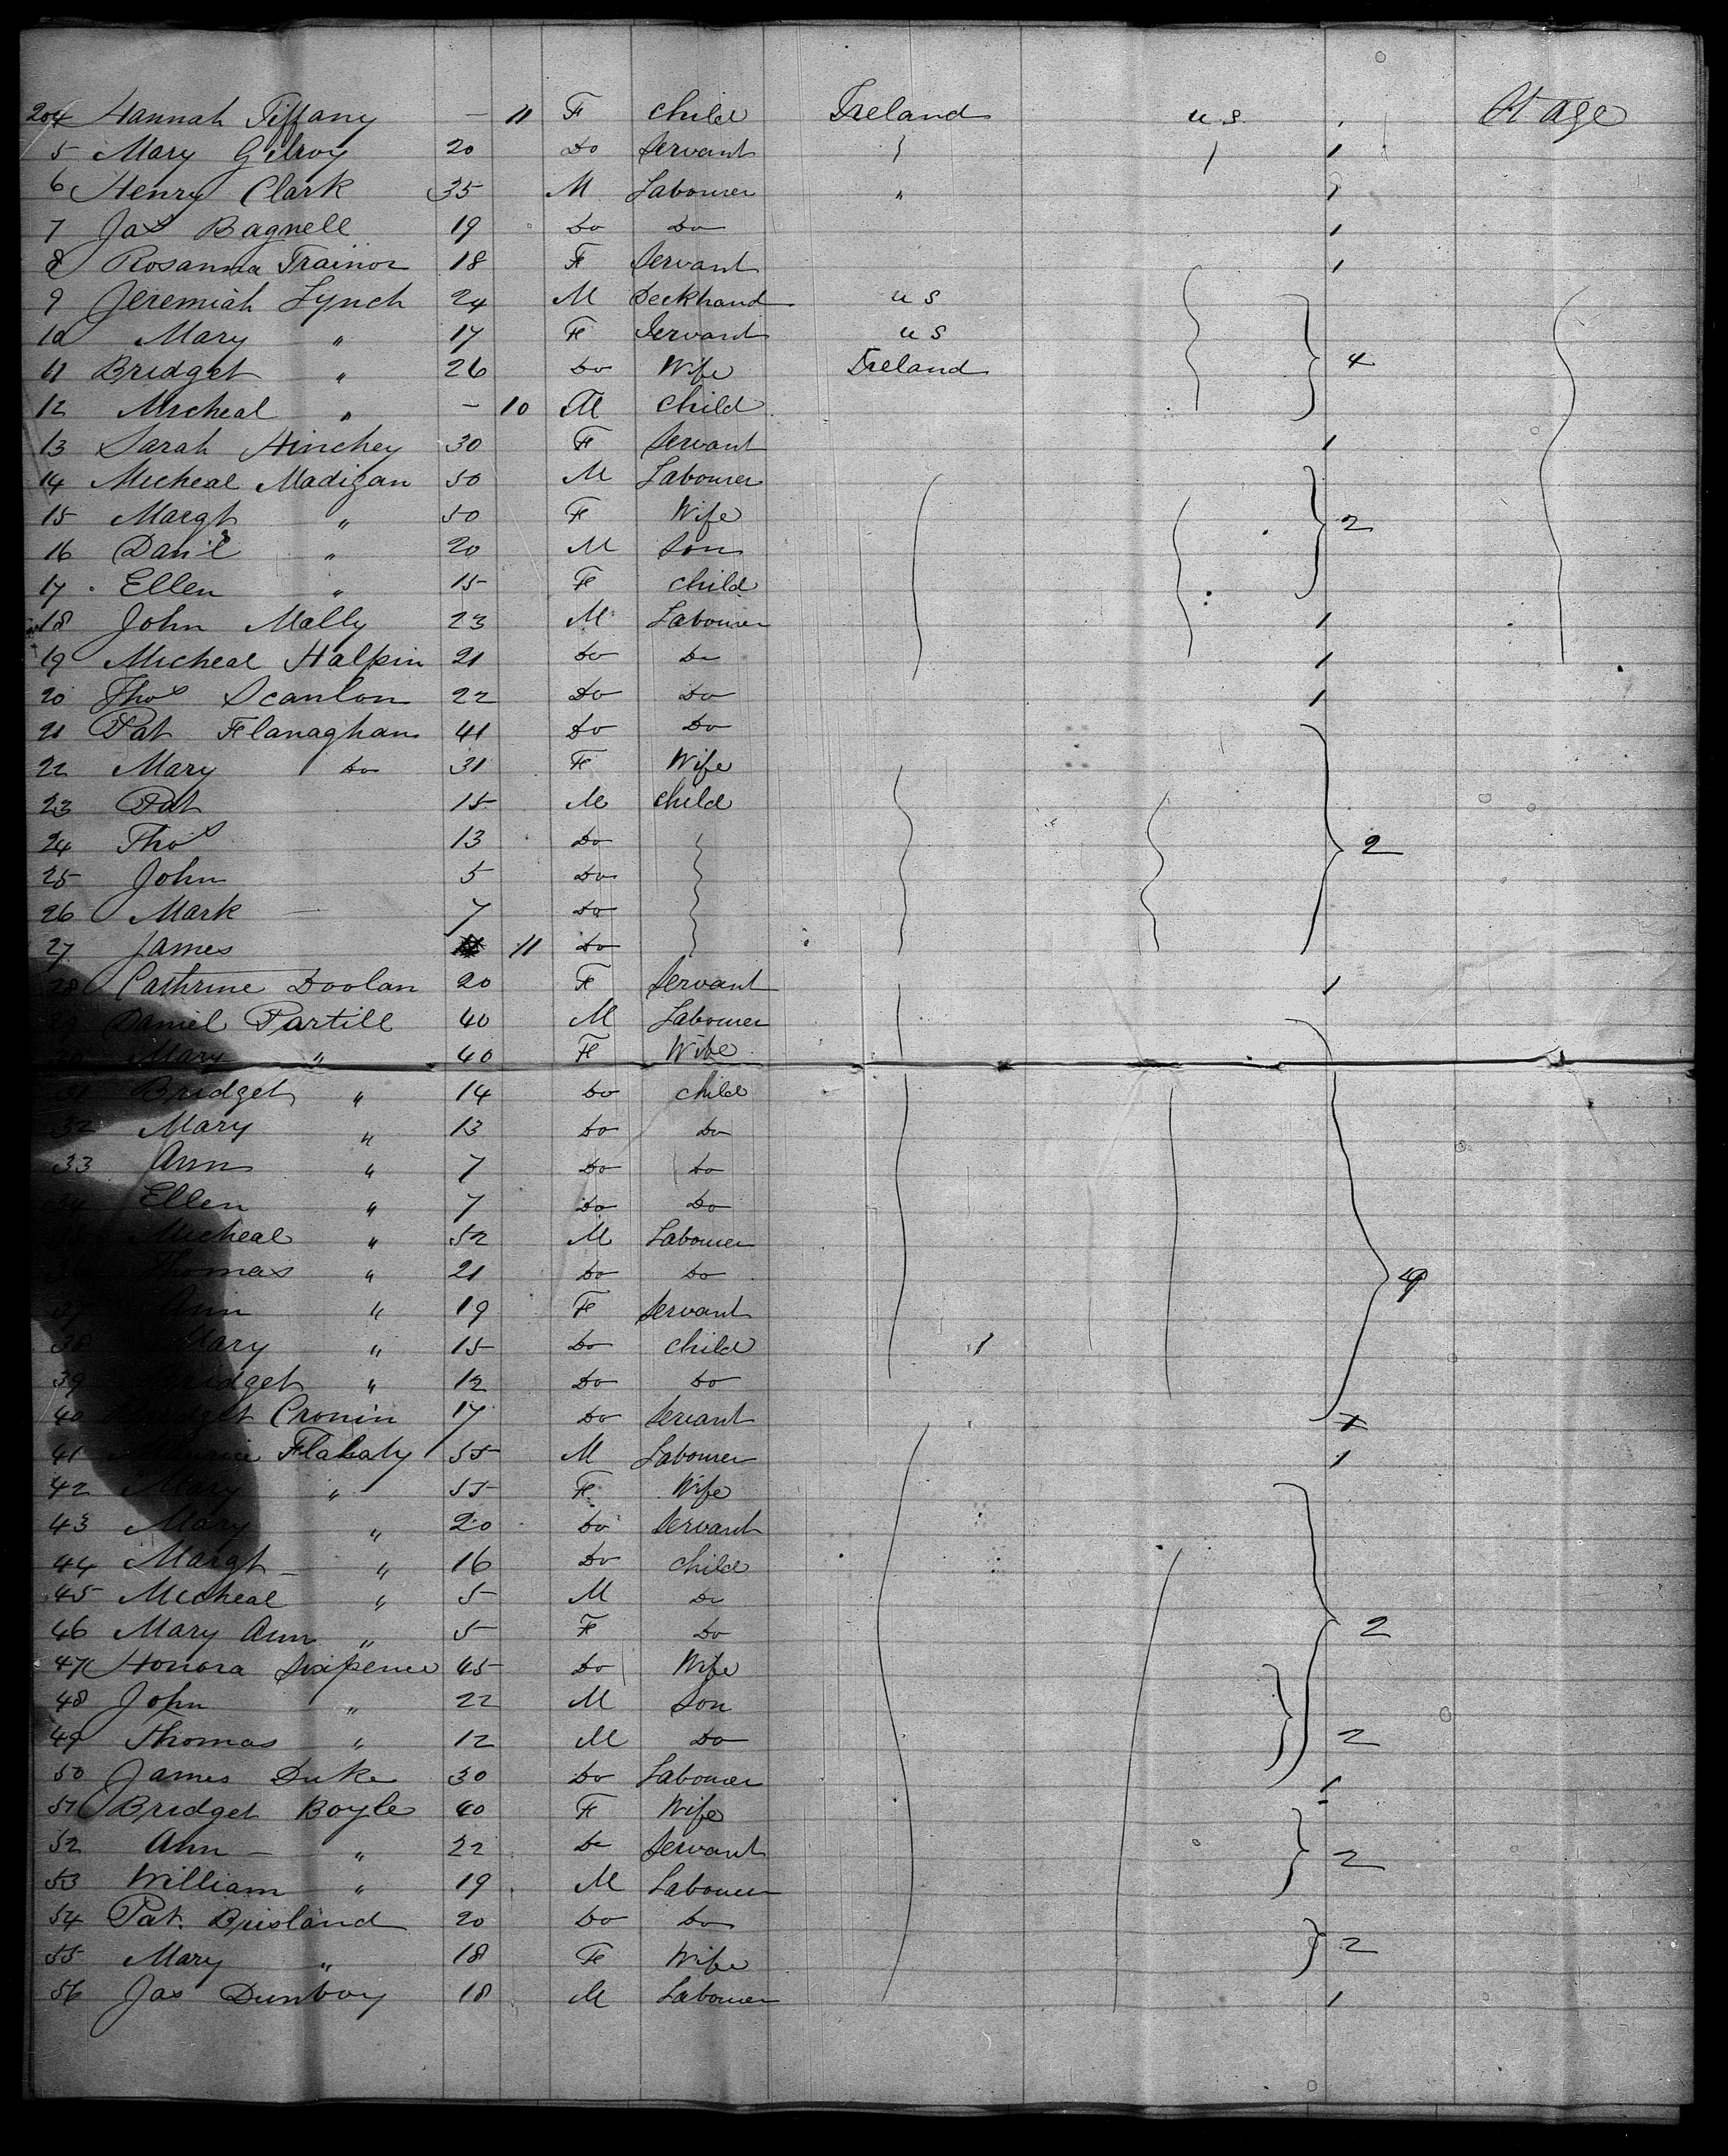 204 Hannah Tiffany – 11 F child Ireland U S. St age
5 Mary Gilroy 20 Do Servant 1
6 Henry Clark 35 M Labourer " 1
7 Jas Bagnell 19 Do Do 1
8 Rosanna Trainor 18 F Servant 1
9 Jeremiah Lynch 24 M Deckhand U S
10 Mary " 17 F Servant U S
11 Bridget " 26 Do Wife Ireland 4
12 Micheal " – 10 M child
13 Sarah Hinchey 30 F Servant 1
14 Micheal Madigan 50 M Labourer
15 Margt " 50 F Wife 2
16 Danl " 20 M Son
17 Ellen " 15 F child
18 John Mally 23 M Labourer 1
19 Micheal Halpin 21 Do Do 1
20 Thos Scanlon 22 Do Do 1
21 Pat Flanaghan 41 Do Do
22 Mary Do 31 F Wife
23 Pat 15 M child
24 Thos 13 Do 2
25 John 5 Do
26 Mark 7 Do
27 James 11 Do
28 Cathrine Doolan 20 F Servant 1
Daniel Partill 40 M Labourer
Mary " 40 F Wife
31 Bridget " 14 Do child
32 Mary " 13 Do Do
33 Ann " 7 Do Do
34 Ellen " 7 Do Do
Micheal " 52 M Labourer
Thomas " 21 Do Do
37 Ann " 19 F Servant
38 Mary " 15 Do child 1
39 Bridget " 12 Do Do
40 Bridget Cronin 17 Do Servant 1
41 Maurice Flahaty 55 M Labourer 1
42 Mary " 55 F Wife
43 Mary " 20 Do Servant
44 Margt " 16 Do child
45 Micheal " 5 M Do
46 Mary Ann " 5 F Do 2
47 Honora Sixpence 45 Do Wife
48 John " 22 M Son
49 Thomas " 12 M Do 2
50 James Duke 30 Do Labourer 1
51 Bridget Boyle 40 F Wife
52 Ann " 22 Do Servant 2
53 William " 19 M Labourer
54 Pat. Brisland 20 Do Do
55 Mary " 18 F Wife 2
56 Jas Dunboy 18 M Labourer 1